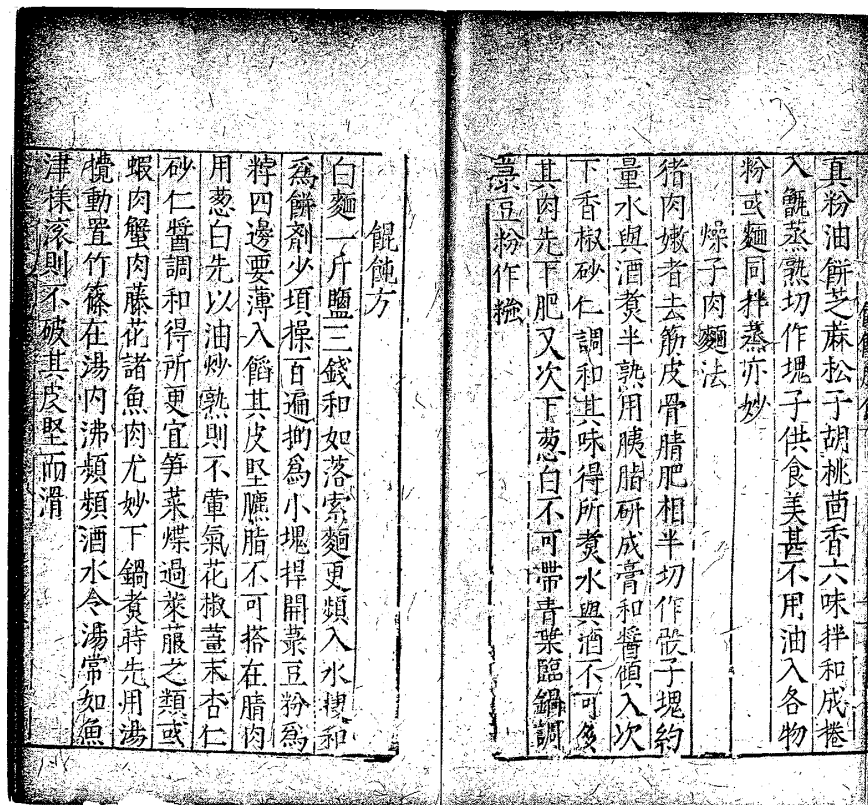 真粉油餅芝蔴松子胡桃茴香六味拌和成捲
入甑蒸熟切作塊子供食美甚不用油入各物
粉或麵同拌蒸亦妙
燥子肉麵法
猪肉嫩者去筋皮骨腈肥相半切作骰子塊約
量水與酒煑半熟用胰脂研成膏和醬傾入次
下香椒砂仁調和其味得所煑水與酒不可多
其肉先下肥又次下葱白不可帶青葉臨鍋調
菉豆粉作糨
餛飩方
白麵一斤鹽三錢和如落索麵更頻入水搜和
爲餅劑少頃操百遍抝爲小塊捍開菉豆粉爲
粰四邊要薄入餡其皮堅臕脂不可搭在腈肉
用葱白先以油炒熟則不葷氣花椒薑末杏仁
砂仁醬調和得所更宜笋菜煠過萊菔之類或
蝦肉蟹肉藤花諸魚肉尤妙下鍋煑時先用湯
攪動置竹篠在湯内沸頻頻洒水令湯常如魚
津樣滚則不破其皮堅而滑